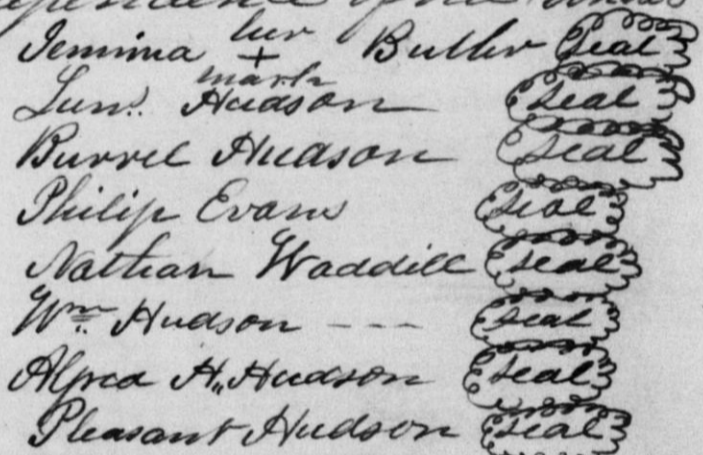 Jemima her + mark Butler Seal
Hudson Seal
Burrel Hudson Seal
Philip Evans Seal
Nathan Waddill Seal
Wm. Hudson --- Seal
Alfred H. Hudson Seal
Pleasant Hudson Seal